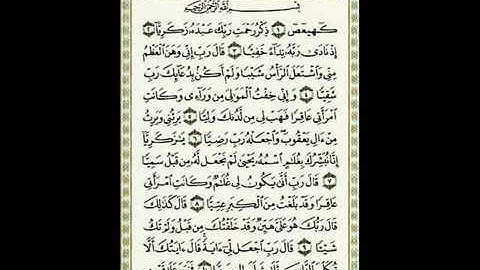 بِسْمِ ٱللَّهِ ٱلرَّحْمَٰنِ ٱلرَّحِيمِ
كٓهيعٓصٓ ١ ذِكْرُ رَحْمَتِ رَبِّكَ عَبْدَهُۥ زَكَرِيَّآ ٢
إِذْ نَادَىٰ رَبَّهُۥ نِدَآءً خَفِيًّا ٣ قَالَ رَبِّ إِنِّى وَهَنَ ٱلْعَظْمُ
مِنِّى وَٱشْتَعَلَ ٱلرَّأْسُ شَيْبًا وَلَمْ أَكُنۢ بِدُعَآئِكَ رَبِّ
شَقِيًّا ٤ وَإِنِّى خِفْتُ ٱلْمَوَٰلِىَ مِن وَرَآءِى وَكَانَتِ
ٱمْرَأَتِى عَاقِرًا فَهَبْ لِى مِن لَّدُنكَ وَلِيًّا ٥ يَرِثُنِى وَيَرِثُ
مِنْ ءَالِ يَعْقُوبَ وَٱجْعَلْهُ رَبِّ رَضِيًّا ٦ يَٰزَكَرِيَّآ
إِنَّا نُبَشِّرُكَ بِغُلَٰمٍ ٱسْمُهُۥ يَحْيَىٰ لَمْ نَجْعَل لَّهُۥ مِن قَبْلُ سَمِيًّا
٧ قَالَ رَبِّ أَنَّىٰ يَكُونُ لِى غُلَٰمٌ وَكَانَتِ ٱمْرَأَتِى
عَاقِرًا وَقَدْ بَلَغْتُ مِنَ ٱلْكِبَرِ عِتِيًّا ٨ قَالَ كَذَٰلِكَ
قَالَ رَبُّكَ هُوَ عَلَىَّ هَيِّنٌ وَقَدْ خَلَقْتُكَ مِن قَبْلُ وَلَمْ تَكُ
شَيْـًٔا ٩ قَالَ رَبِّ ٱجْعَل لِّىٓ ءَايَةً قَالَ ءَايَتُكَ أَلَّا